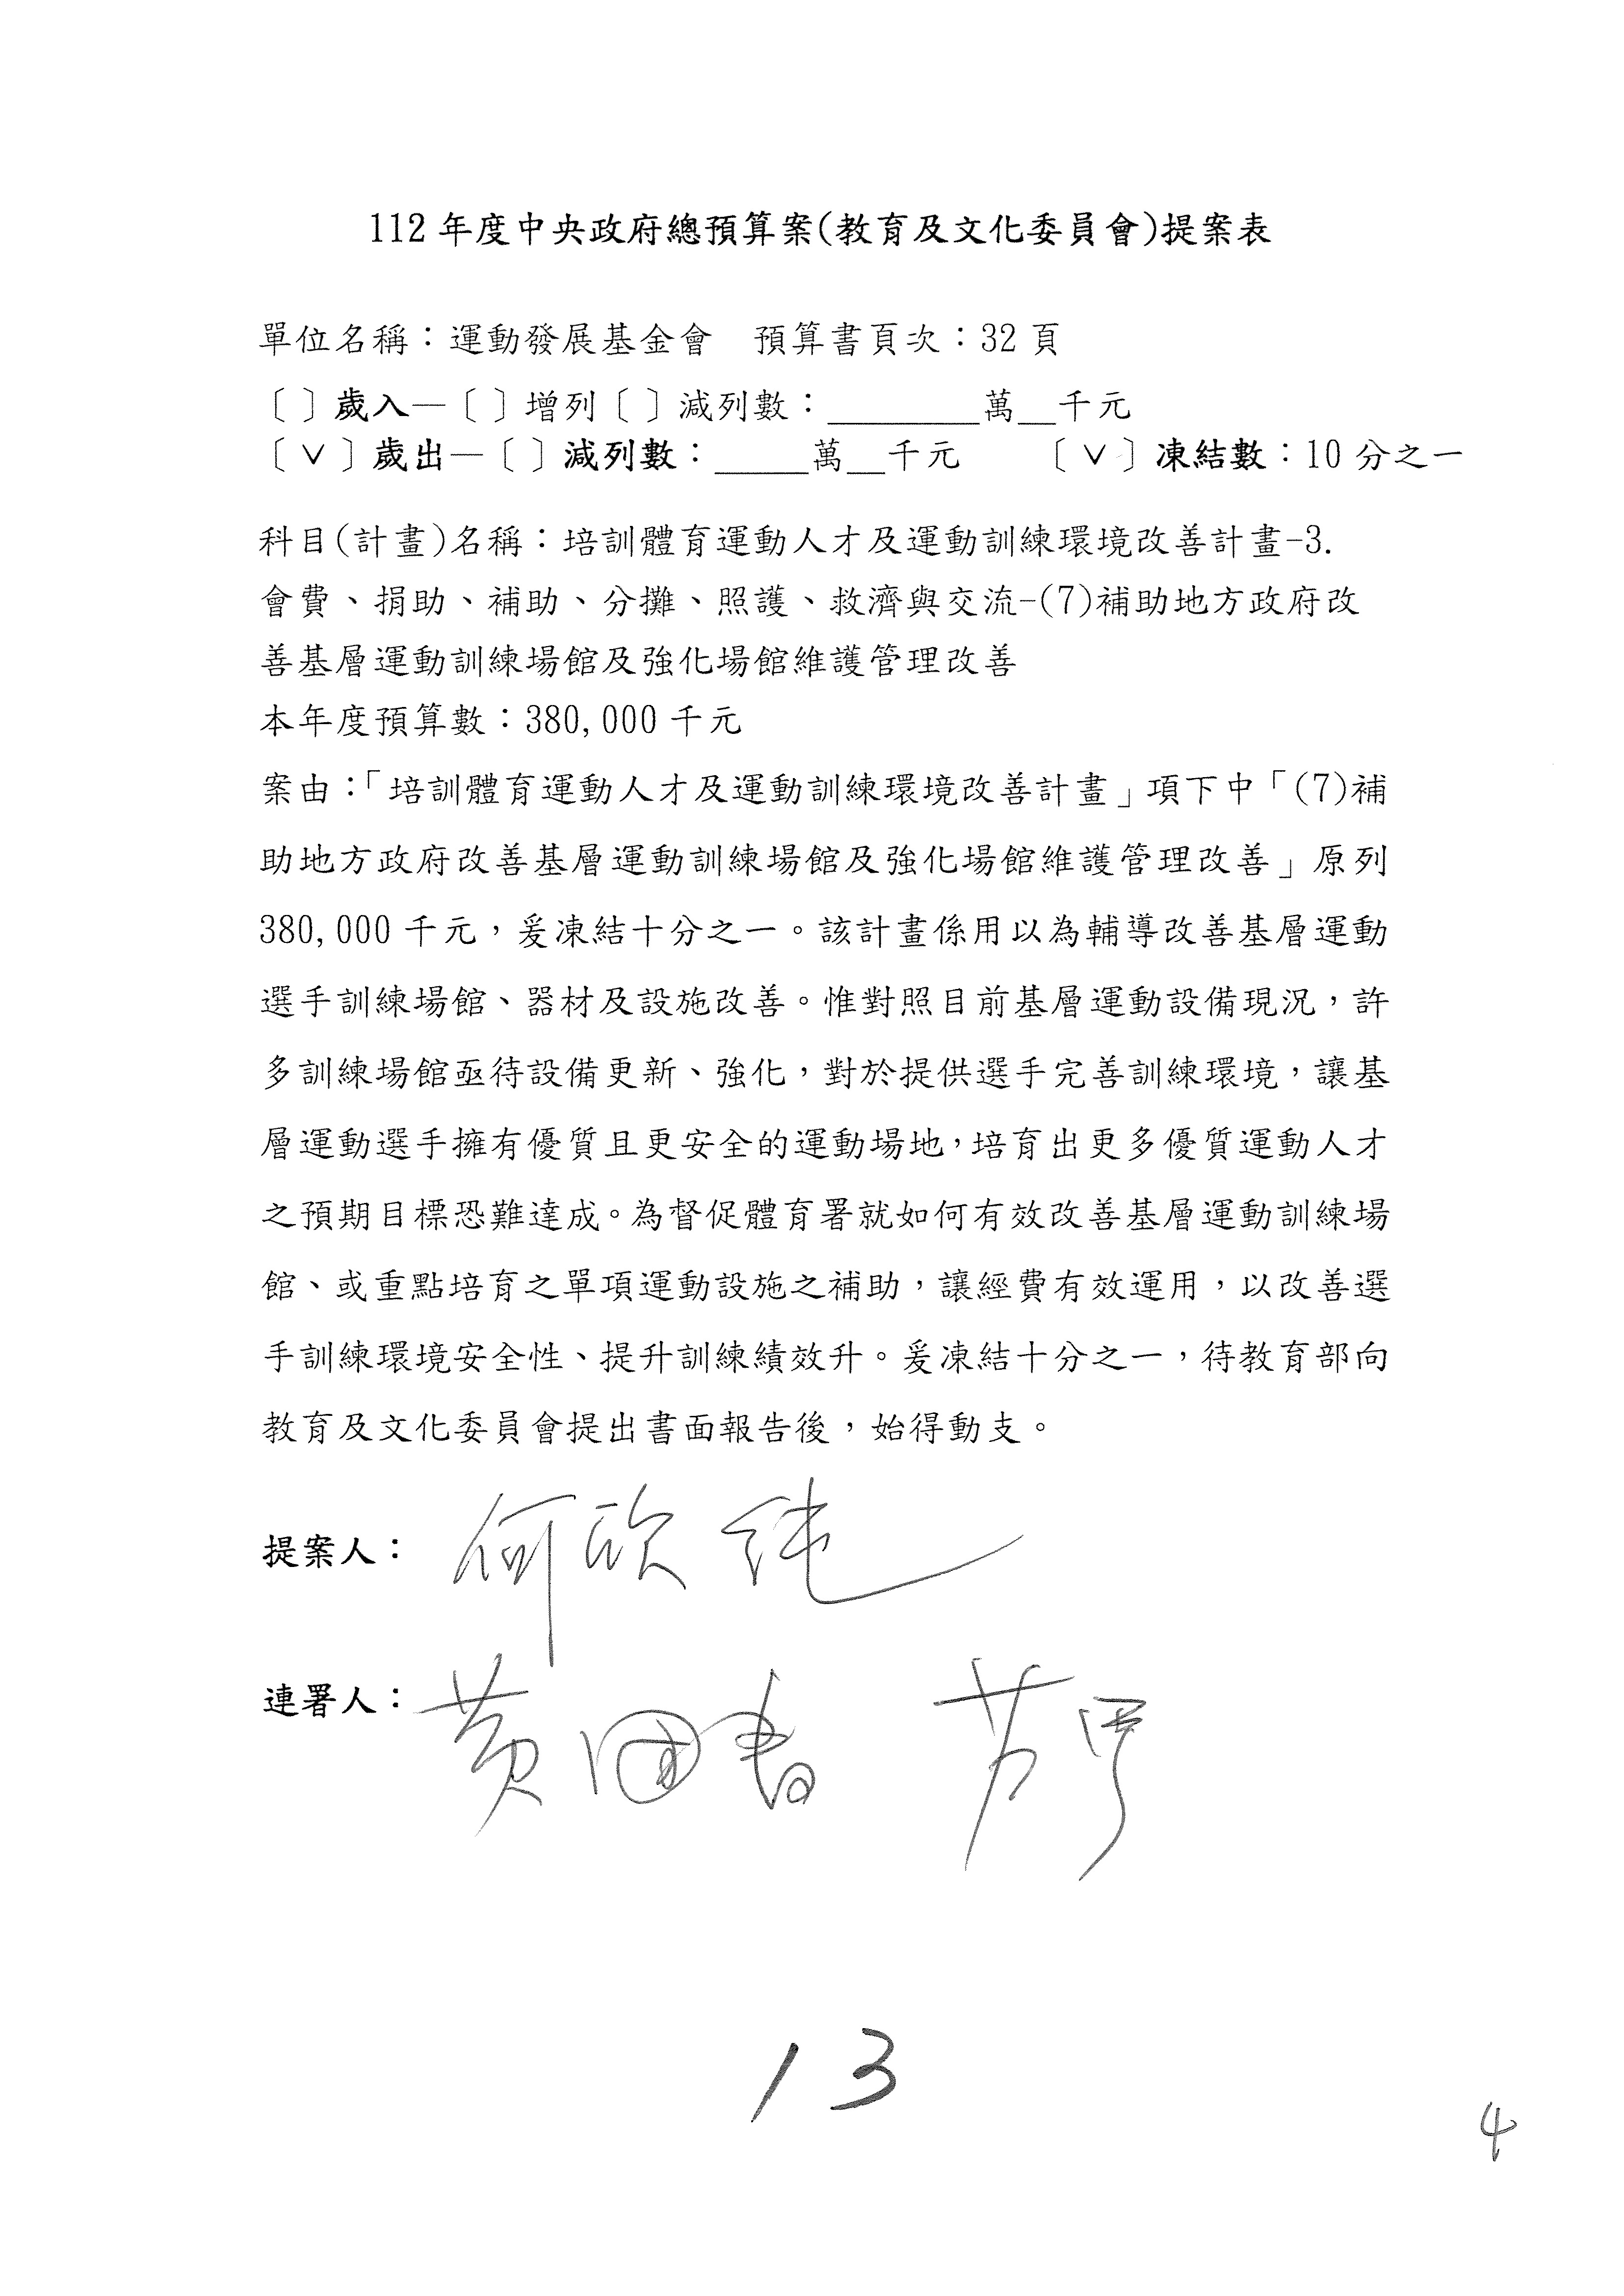 112 年度中央政府總預算案(教育及文化委員會)提案表
單位名稱：運動發展基金會　預算書頁次：32 頁
〔 〕歲入—〔 〕增列〔 〕減列數：________萬__千元
〔 ∨ 〕歲出—〔 〕減列數：_____萬__千元　　〔 ∨ 〕凍結數：10 分之一
科目(計畫)名稱：培訓體育運動人才及運動訓練環境改善計畫-3.
會費、捐助、補助、分攤、照護、救濟與交流-(7)補助地方政府改
善基層運動訓練場館及強化場館維護管理改善
本年度預算數：380,000 千元
案由：「培訓體育運動人才及運動訓練環境改善計畫」項下中「(7)補
助地方政府改善基層運動訓練場館及強化場館維護管理改善」原列
380,000 千元，爰凍結十分之一。該計畫係用以為輔導改善基層運動
選手訓練場館、器材及設施改善。惟對照目前基層運動設備現況，許
多訓練場館亟待設備更新、強化，對於提供選手完善訓練環境，讓基
層運動選手擁有優質且更安全的運動場地，培育出更多優質運動人才
之預期目標恐難達成。為督促體育署就如何有效改善基層運動訓練場
館、或重點培育之單項運動設施之補助，讓經費有效運用，以改善選
手訓練環境安全性、提升訓練績效升。爰凍結十分之一，待教育部向
教育及文化委員會提出書面報告後，始得動支。
提案人： 何欣純
連署人： 黃國書
13
4